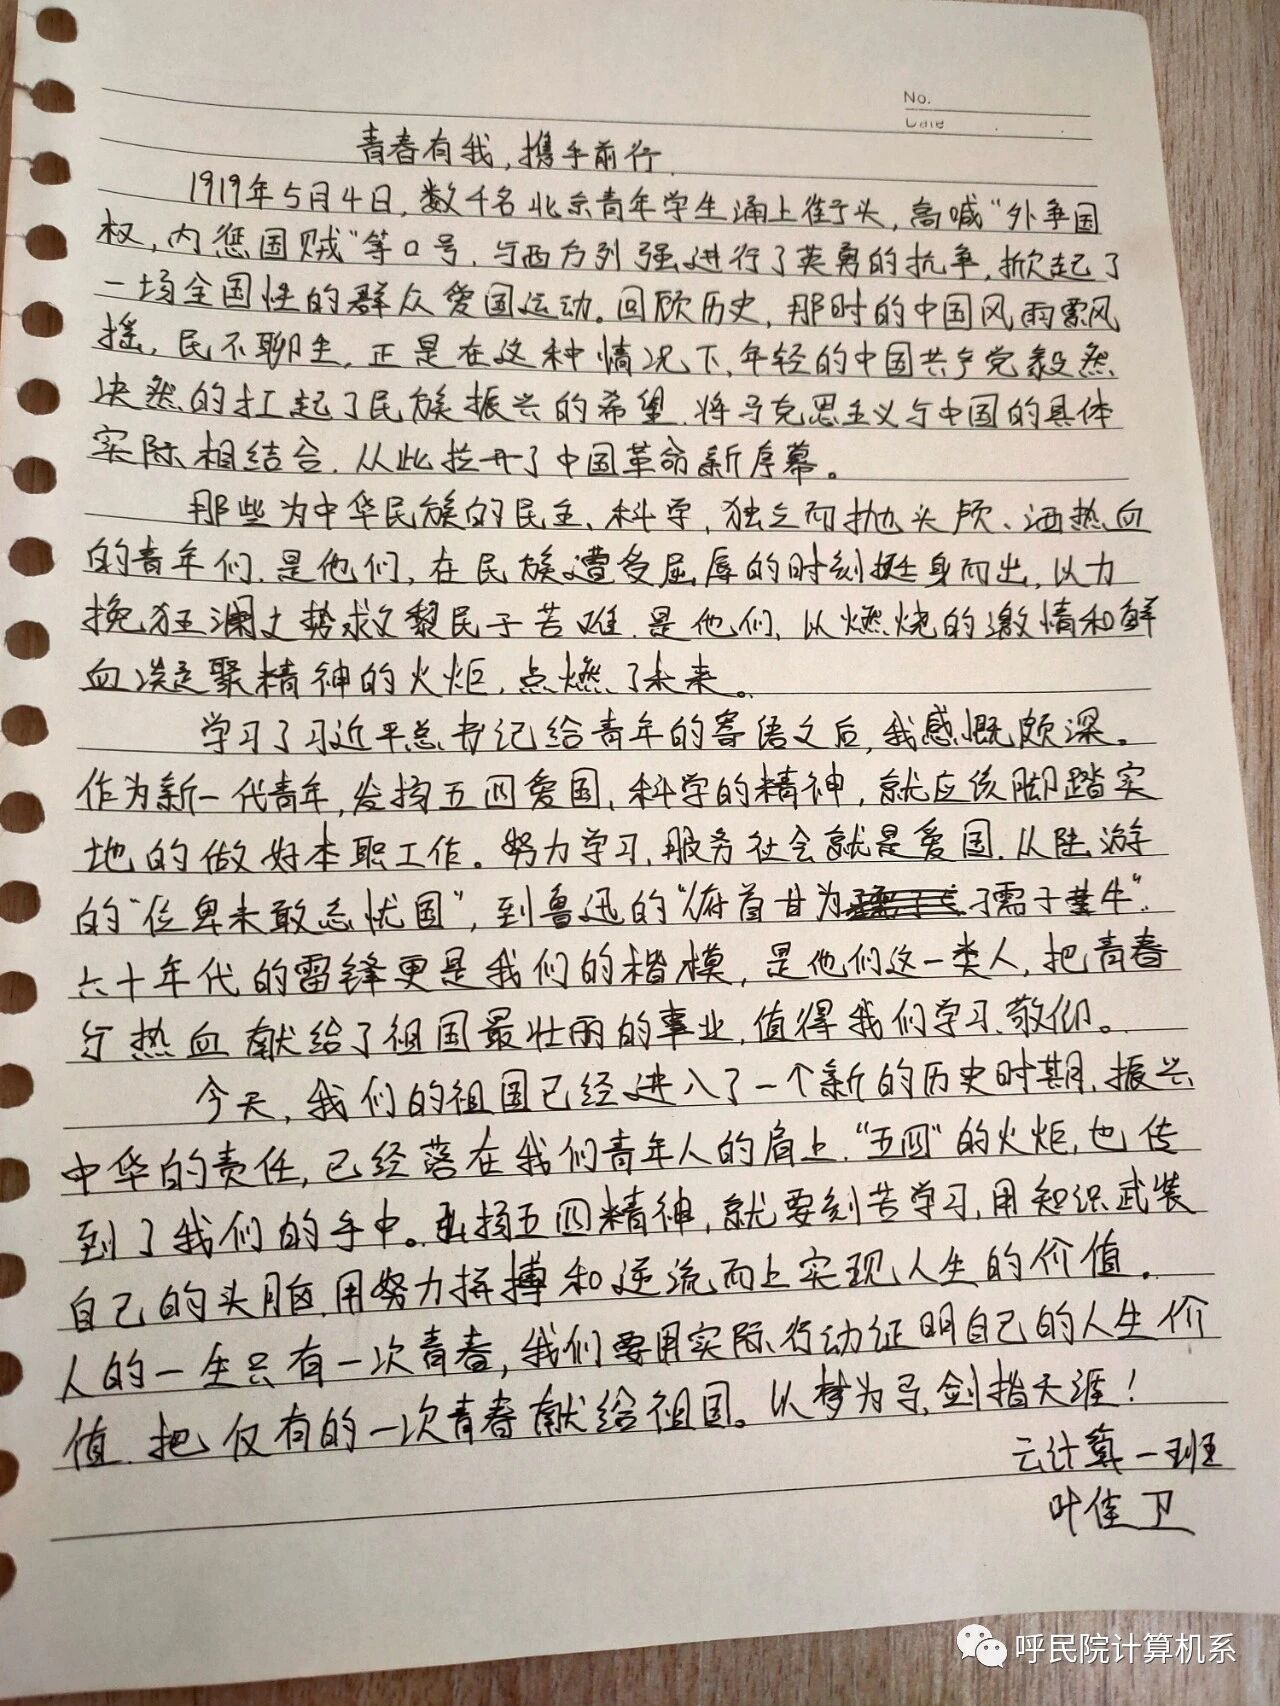 No.
Date
青春有我，携手前行
1919年5月4日，数千名北京青年学生涌上街头，高喊“外争国
权，内惩国贼”等口号，与西方列强进行了英勇的抗争，掀起了
一场全国性的群众爱国运动。回顾历史，那时的中国风雨飘
摇，民不聊生，正是在这种情况下，年轻的中国共产党毅然
决然的扛起了民族振兴的希望，将马克思主义与中国的具体
实际相结合，从此拉开了中国革命新序幕。
那些为中华民族的民主、科学，独立而抛头颅、洒热血
的青年们，是他们，在民族遭受屈辱的时刻挺身而出，以力
挽狂澜之势救黎民于苦难，是他们，以燃烧的激情和鲜
血凝聚精神的火炬，点燃了未来。
学习了习近平总书记给青年的寄语文后，我感慨颇深。
作为新一代青年，发扬五四爱国、科学的精神，就应该脚踏实
地的做好本职工作。努力学习，服务社会就是爱国，从陆游
的“位卑未敢忘忧国”，到鲁迅的“俯首甘为孺子牛”
六十年代的雷锋更是我们的楷模，是他们这一类人，把青春
与热血献给了祖国最壮丽的事业，值得我们学习、敬仰。
今天，我们的祖国已经进入了一个新的历史时期，振兴
中华的责任，已经落在我们青年人的肩上，“五四”的火炬，也传
到了我们的手中。弘扬五四精神，就要刻苦学习，用知识武装
自己的头脑，用努力拼搏和逆流而上实现人生的价值。
人的一生只有一次青春，我们要用实际行动证明自己的人生价
值，把仅有的一次青春献给祖国。以梦为马，剑指天涯！
云计算一班
叶佳卫
呼民院计算机系